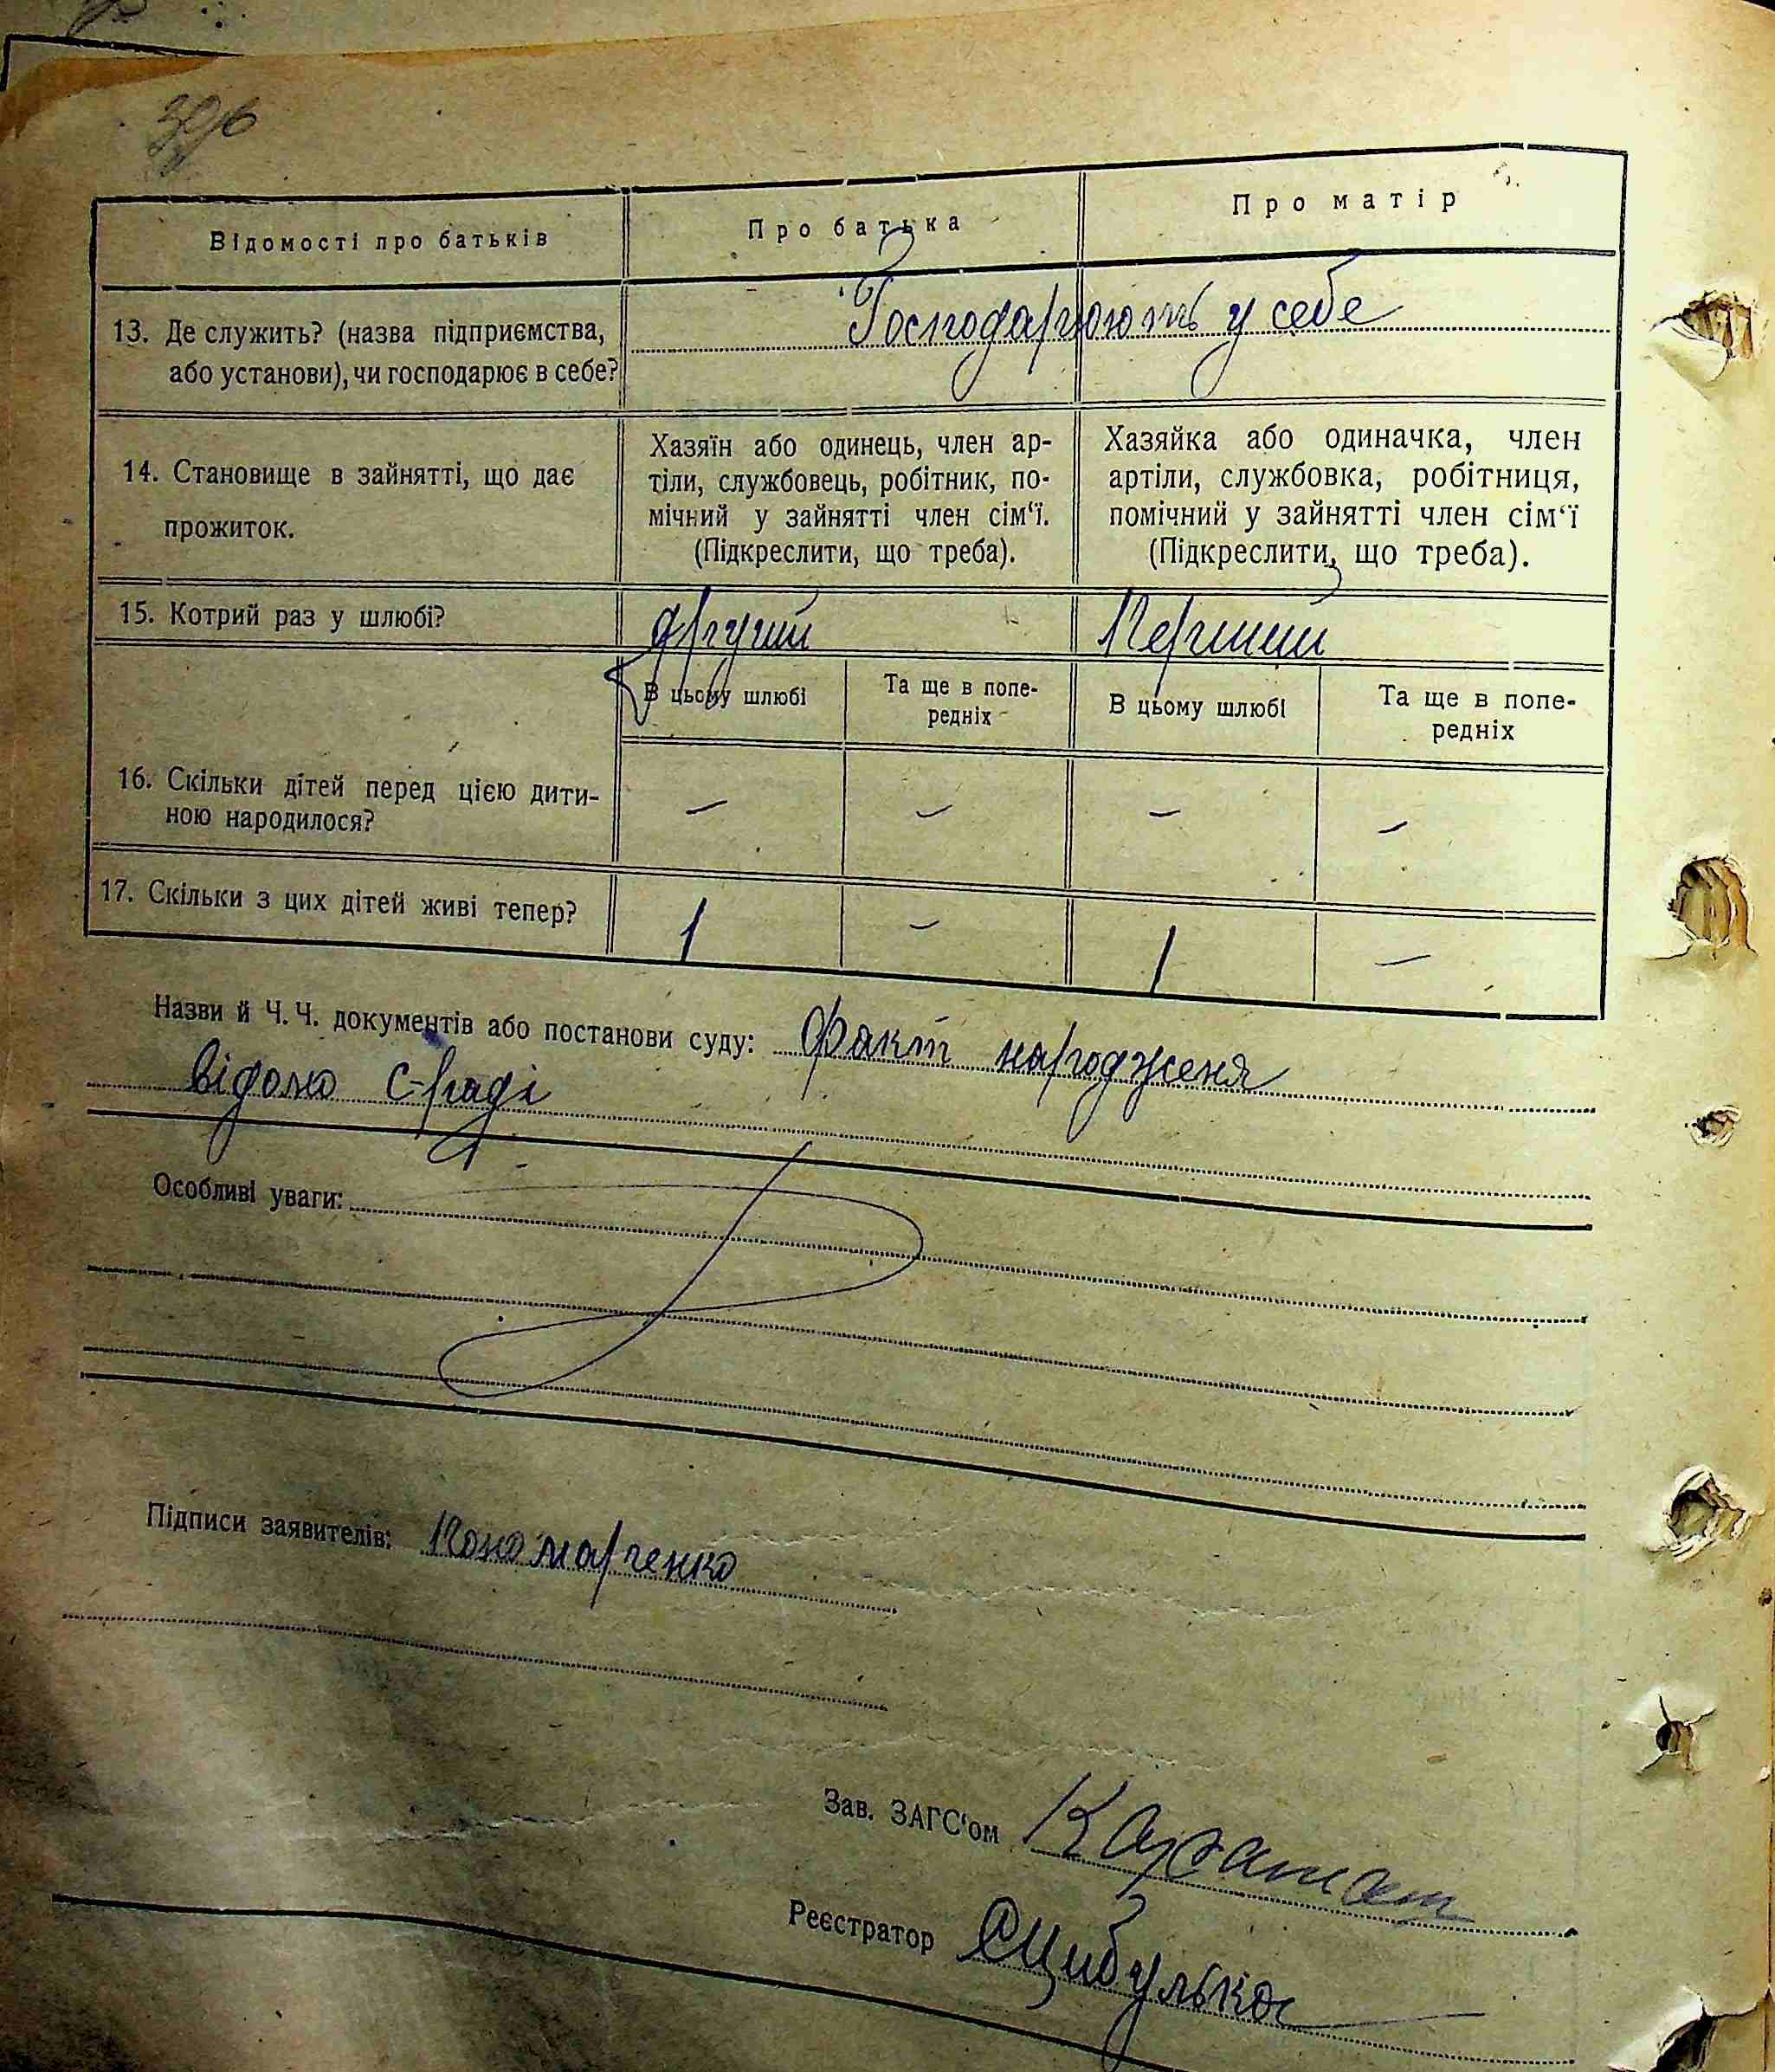 Відомості про батьків
Про батька
Про матір
13. Де служить? (назва підприємства,
або установи), чи господарює в себе?
Господарюють у себе
14. Становище в зайнятті, що дає
прожиток.
Хазяїн або одинець, член ар-
тіли, службовець, робітник, по-
мічний у зайнятті член сім‘ї.
(Підкреслити, що треба).
Хазяйка або одиначка, член
артіли, службовка, робітниця,
помічний у зайнятті член сім‘ї
(Підкреслити, що треба).
15. Котрий раз у шлюбі?
другий
Перший
В цьому шлюбі
Та ще в попе-
редніх
В цьому шлюбі
Та ще в попе-
редніх
16. Скільки дітей перед цією дити-
ною народилося?
— — — —
17. Скільки з цих дітей живі тепер?
1 — 1 —
Назви й Ч. Ч. документів або постанови суду: Факт народженя
відомо с-раді
Особливі уваги:
Підписи заявителів: Пономаренко
Зав. ЗАГС‘ом
Реєстратор Цибулько